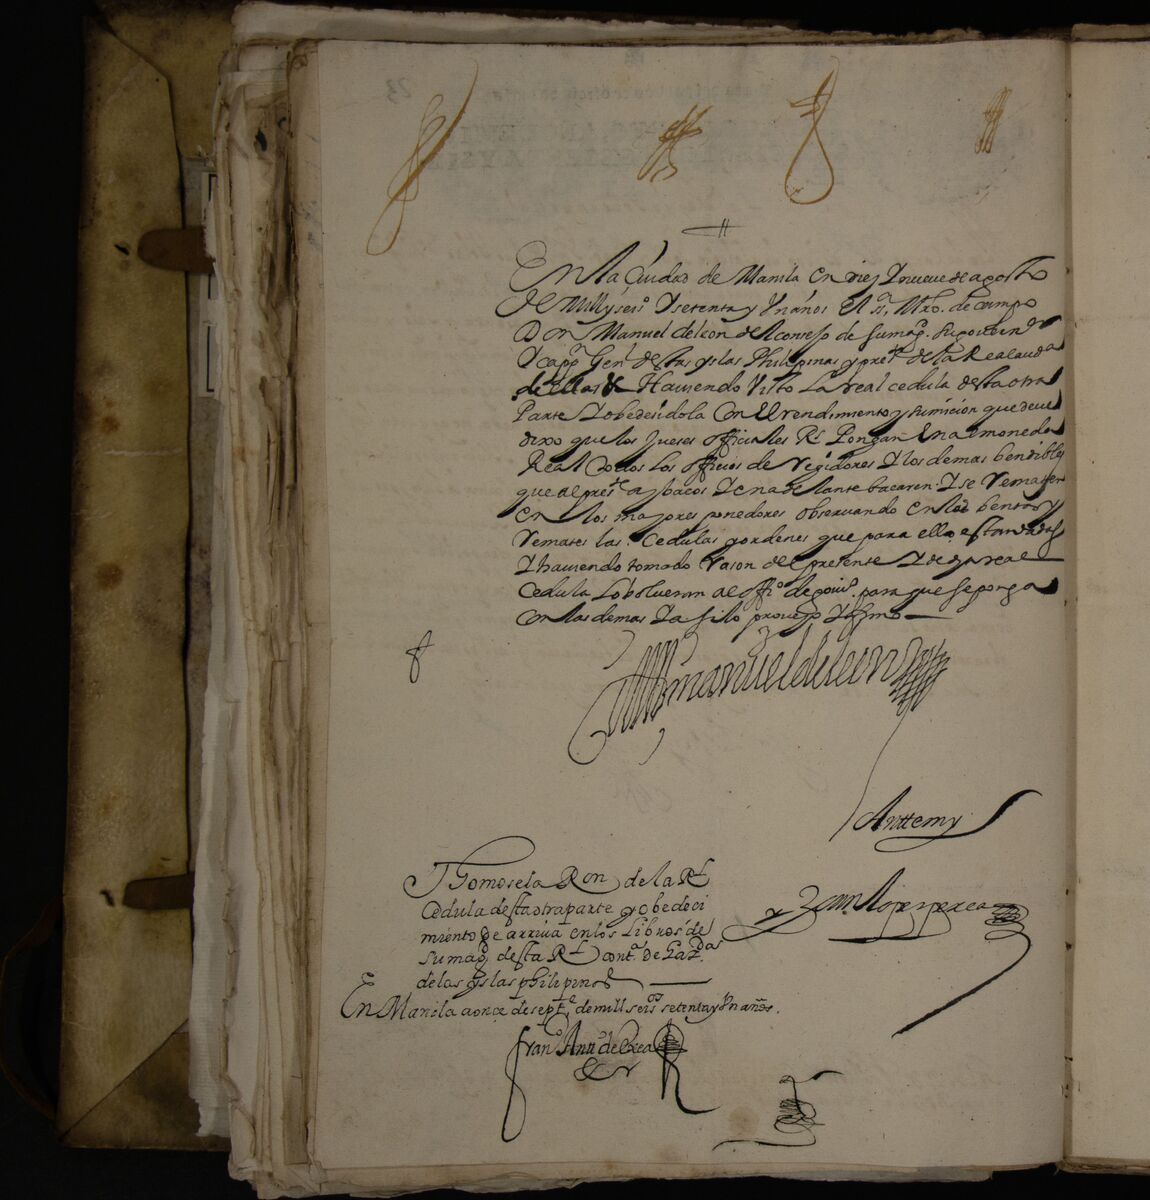 En la Ciudad de Manila en diez Y nueve de agosto
de Mill y seisº Y setenta y Vn años El sr. Mro. de campo
Don Manuel de leon del consejo de su magd. su gov.
Y cappn Genl destas yslas Philipinas y presste de la Real auda
de ellas & Haviendo Visto La real cedula desta otra
Parte Y obedesidola Con El rendimiento y sumission que deve
dixo que los Jueses officiales Rs Pongan En almoneda
Real todos los officios de regidores Y los demas bendibles
que al presste ay bacos Y en adelante bacaren Y se Rematen
en los mayores ponedores observando en las bentas y
Remates las Cedulas y ordenes que para ello estan dadas
Y haviendo tomado rason del presente Y de dha real
Cedula Lo bolveran al offo de govno. para que se ponga
Con las demas Y asi lo proveyo Y firmo
Don manuel de leon
Antte my
Juan lopez perea
Tomose la Ron de la Rl
Cedula desta otra parte y obedeci
miento de arriva en los Libros de
su magd desta Rl contª de Hazdas
de las yslas philipinas
En Manila a onze de septe de mill seisos setenta y Vn años.
Franco Anto de